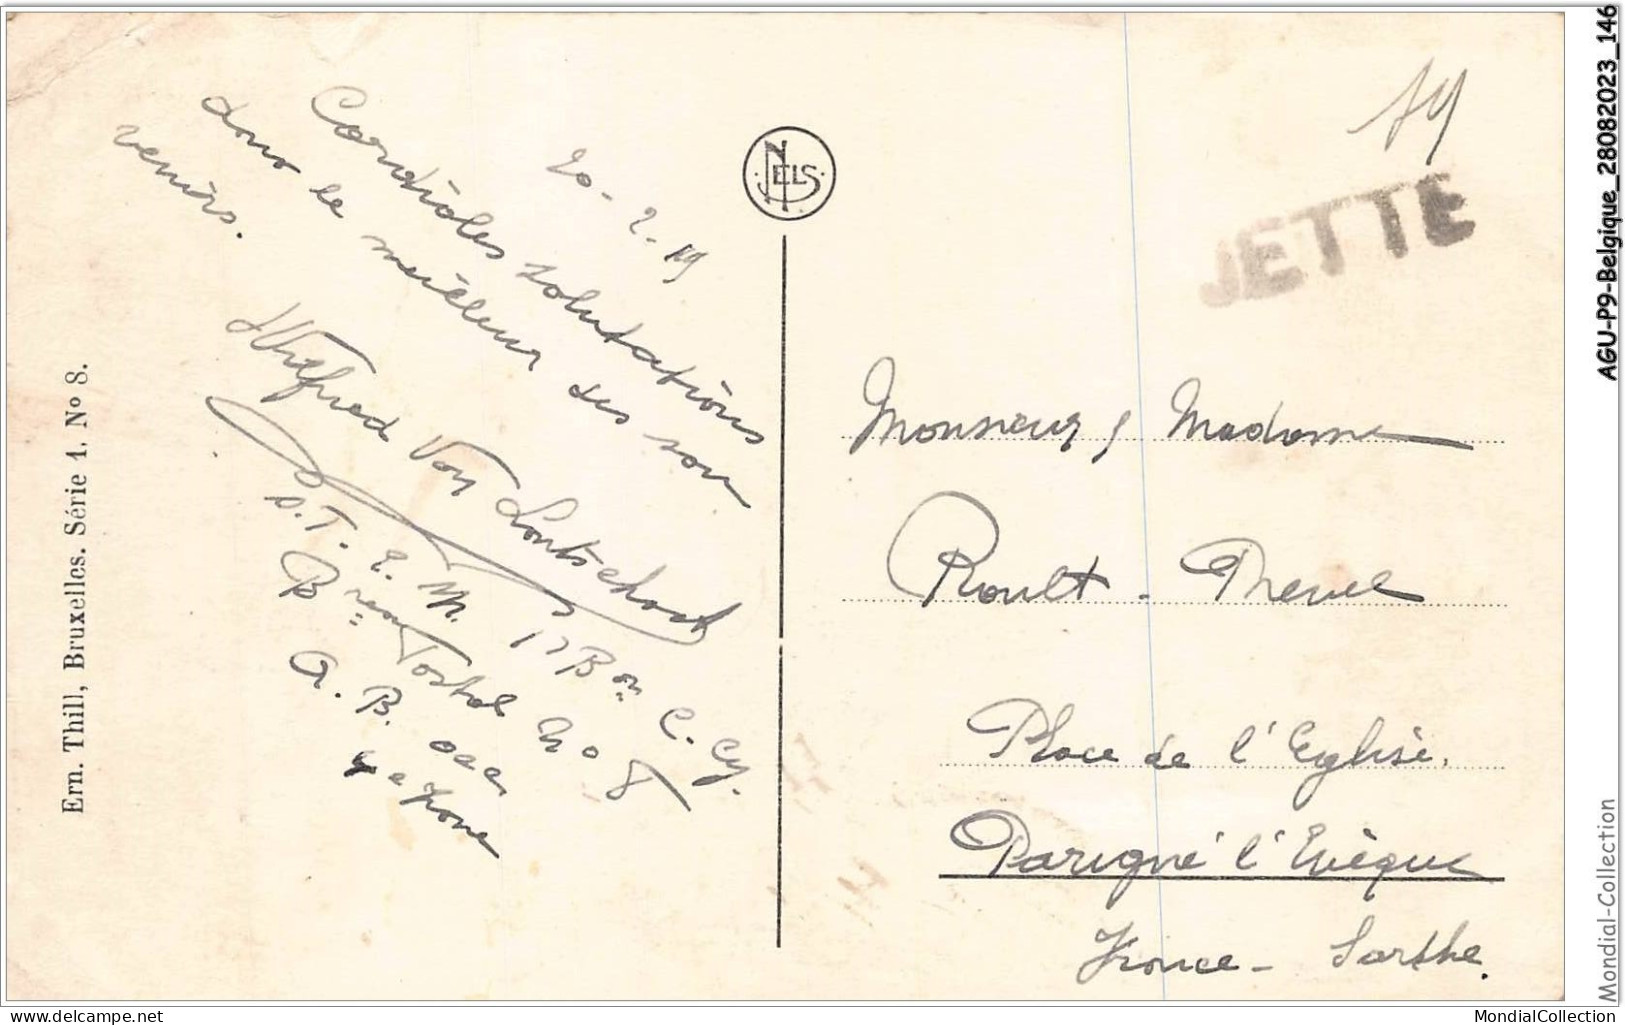 20-2-19
Cordiales salutations
dans le meilleur des sou
venirs.
Wilfried Van Lontschoot
D.T.E.M. 17 Bon C. Cy.
Bureau Postal No 8
A. B. occ
Ern. Thill, Bruxelles. Série 1. No 8.
NELS
19
JETTE
Monsieur, Madame
Roult - Preuel
Place de l'Eglise.
Parigné l'Evèque
France - Sarthe.
AGU-P9-Belgique_28082023_146
Mondial-Collection
delcampe.net
MondialCollection